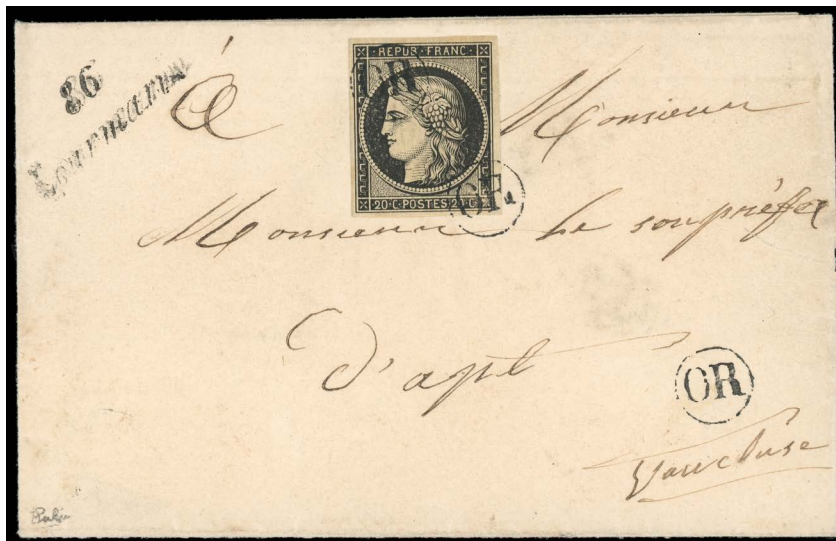 86
Lourmarin
REPUB. FRANC.
OR
20·C·POSTES·20·C
OR
À Monsieur
Monsieur Le souspréfet
d'apt
OR
Vaucluse